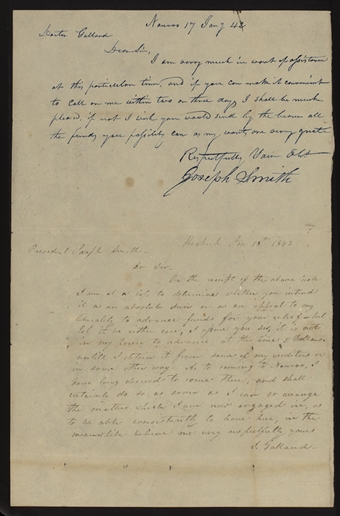 Nauvoo 17 Jany 42
Doctor Galland
Dear Sir,
I am very much in want of assistance
at this particular time, and if you can make it convenient
to call on me within two or three days I shall be much
pleased, if not I wish you would send by the bearer all
the funds you possibly can as my wants are very great
Respectfully Your Obt
Joseph Smith
Jan 18th 1842
President Joseph Smith
Dr Sir,
On the receipt of the above note
I am at a loss to determine whether you intend
it as an absolute or an appeal to my
liberality to advance funds for your relief but
let it be either case, I assure you Sir, it is not
in my power to advance at this time 5 dollars
untill I obtain it from some of my creditors or
in some other way. As to coming to Nauvoo, I
have long desired to come there, and shall
certainly do so, as soon as I can so arrange
the matters which I am now engaged in, as
to be able consistently to leave here, in the
meanwhile believe me very respectfully yours
I. Galland.